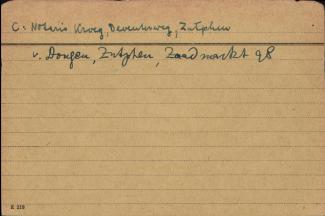 C. Notaris Kroeg, Deventerweg, Zutphen
v. Dongen, Zutphen, Zaadmarkt 98
K 219